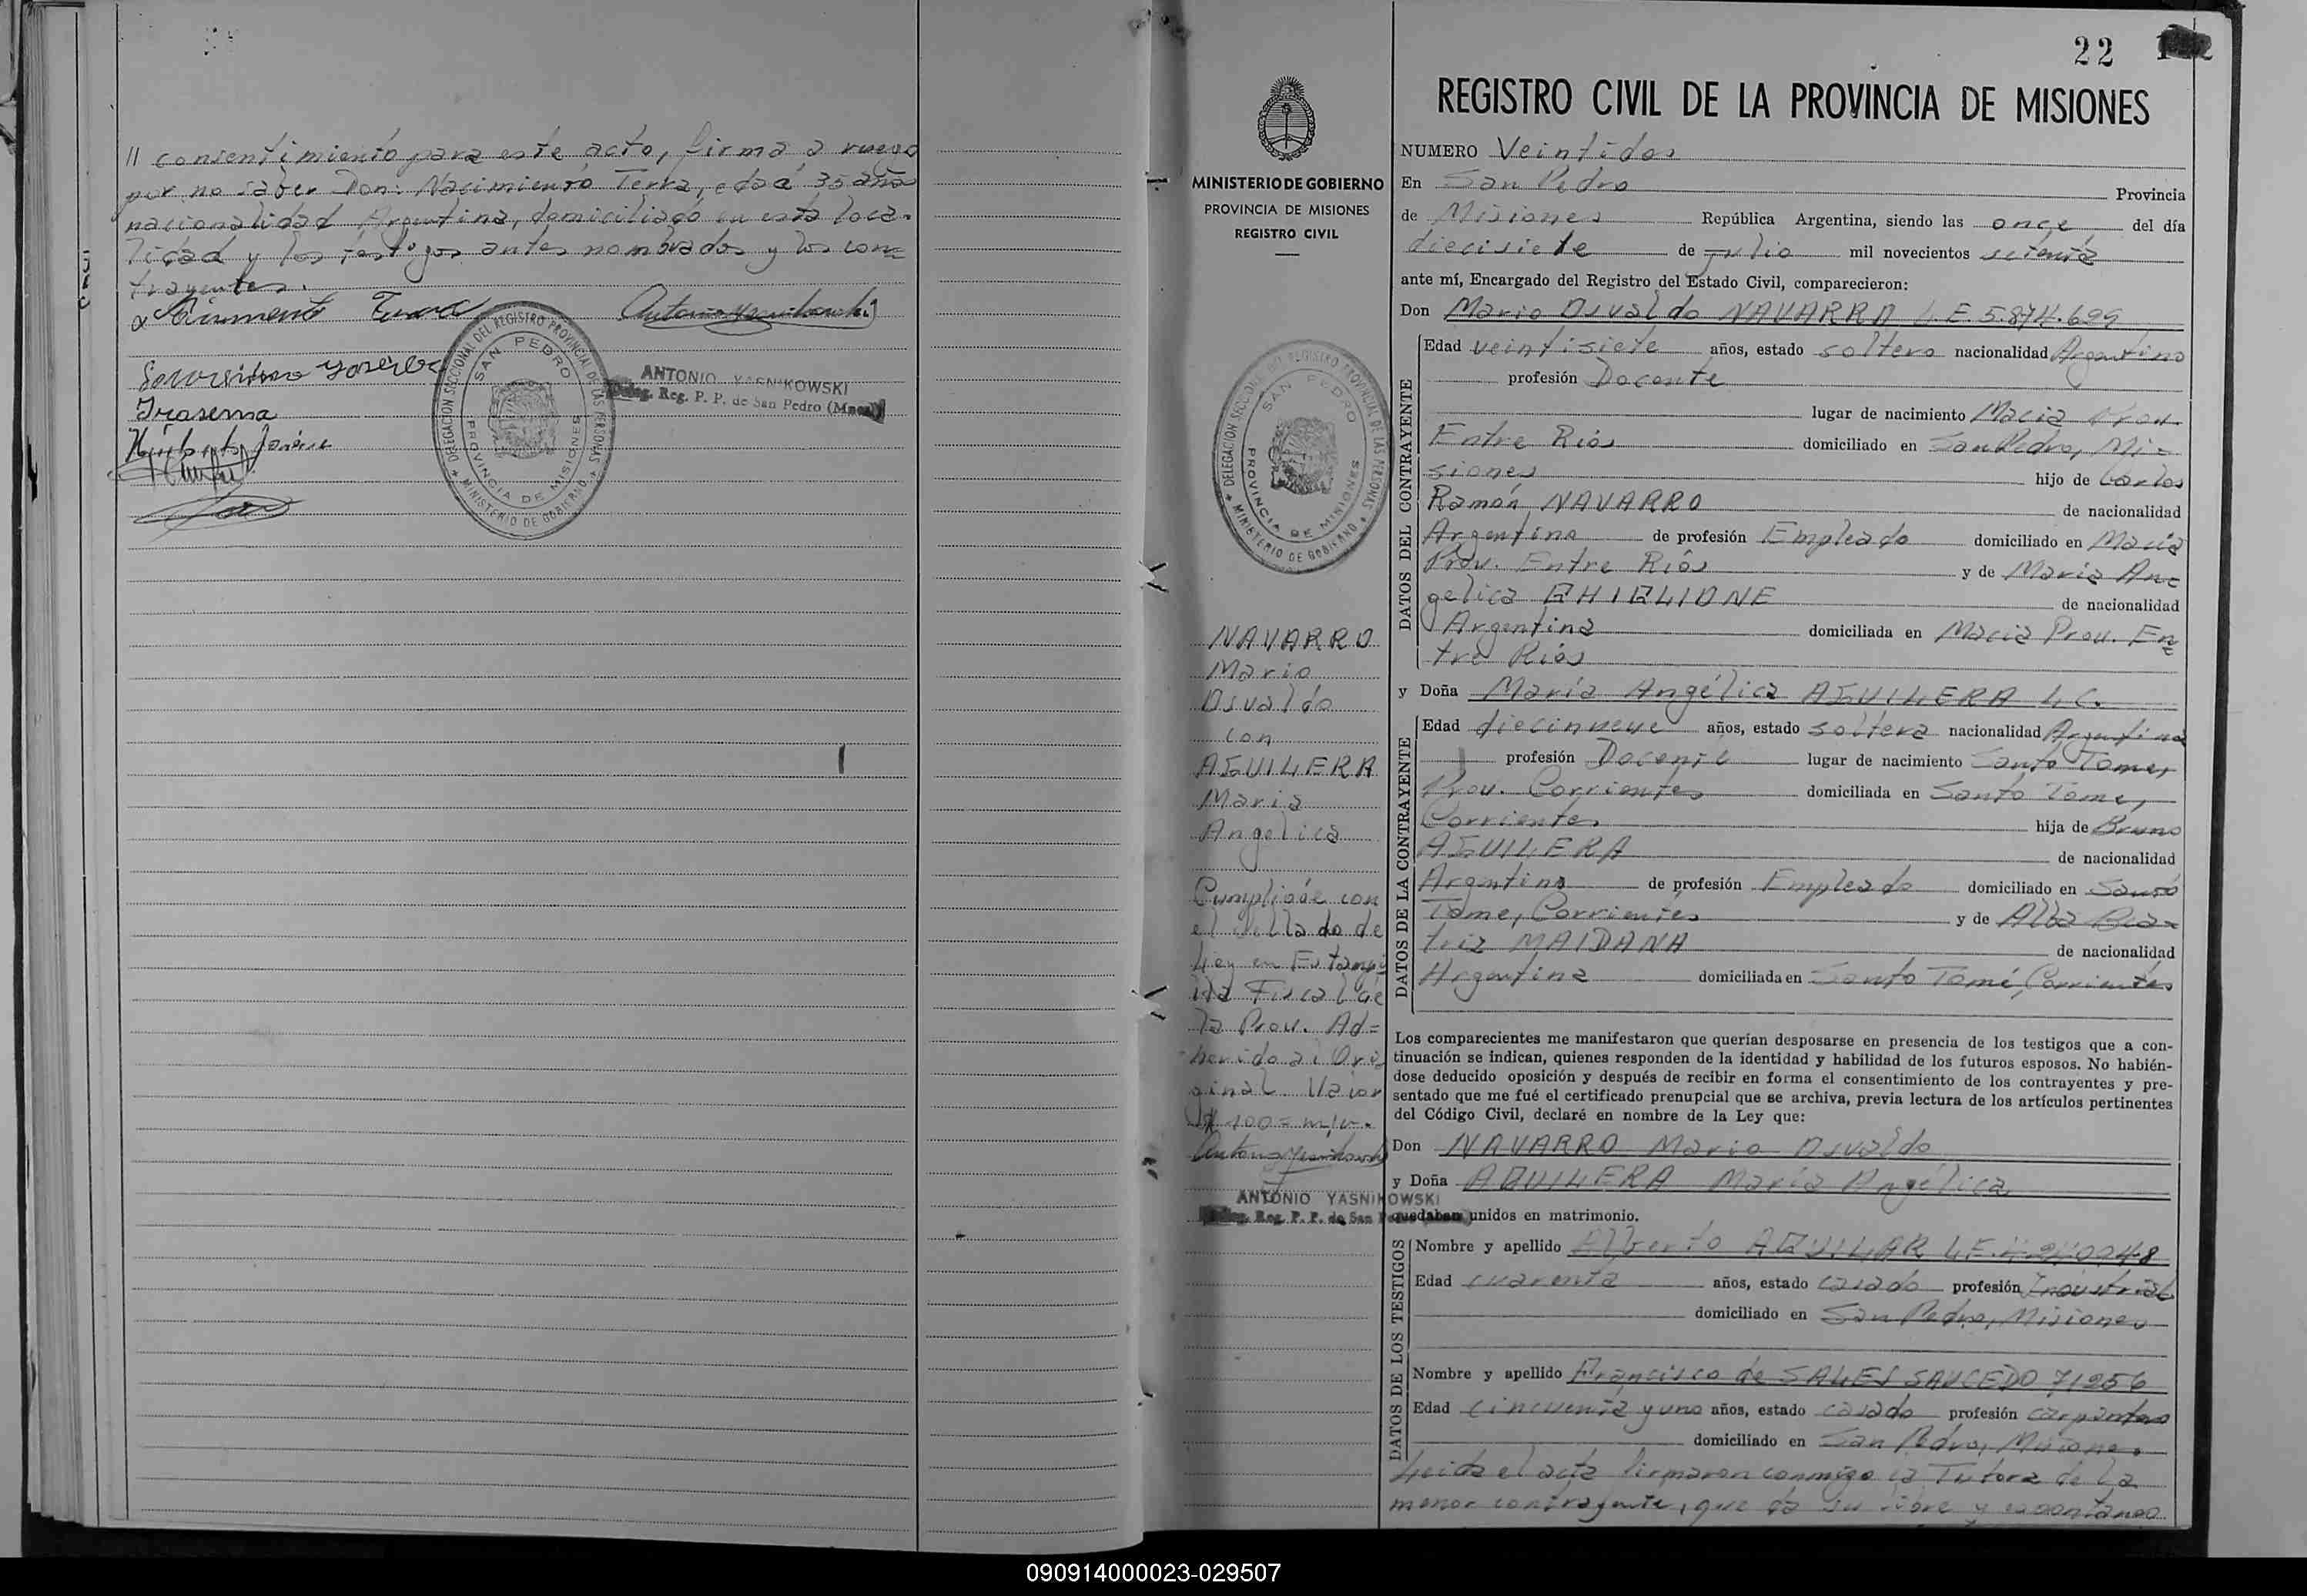 // consentimiento para este acto, firma a ruego
por no saber Don: Nacimiento Terra, edad 35 años
nacionalidad Argentina, domiciliado en esta loca-
lidad y los testigos antes nombrados y los con=
trayentes.
ANTONIO YASNIKOWSKI
Deleg. Reg. P. P. de San Pedro (Mnes.)
DELEGACION SECCIONAL DEL REGISTRO PROVINCIAL DE LAS PERSONAS
MINISTERIO DE GOBIERNO
SAN PEDRO
PROVINCIA DE MISIONES
MINISTERIO DE GOBIERNO
PROVINCIA DE MISIONES
REGISTRO CIVIL
DELEGACION SECCIONAL DEL REGISTRO PROVINCIAL DE LAS PERSONAS
MINISTERIO DE GOBIERNO
SAN PEDRO
PROVINCIA DE MISIONES
NAVARRO
Mario
Osvaldo
con
AGUILERA
Maria
Angelica
Cumplióse con
el Sellado de
Ley en Estampi
lla Fiscal de
la Prov. Ad=
herido al Ori
ginal Valor
$ 100= m/n.
ANTONIO YASNIKOWSKI
Deleg. Reg. P. P. de San
22
REGISTRO CIVIL DE LA PROVINCIA DE MISIONES
NUMERO Veintidos
En San Pedro Provincia
de Misiones República Argentina, siendo las once del día
diecisiete de Julio mil novecientos setenta
ante mí, Encargado del Registro del Estado Civil, comparecieron:
Don Mario Osvaldo NAVARRO L.E. 5.874.699
DATOS DEL CONTRAYENTE
Edad veintisiete años, estado soltero nacionalidad Argentino
profesión Docente
lugar de nacimiento Macia Prov.
Entre Rios domiciliado en San Pedro, Mi=
siones hijo de Carlos
Ramón NAVARRO de nacionalidad
Argentino de profesión Empleado domiciliado en Macia
Prov. Entre Ríos y de María An=
gelica GHIGLIONE de nacionalidad
Argentina domiciliada en Macia Prov. En=
tre Rios
y Doña María Angélica AGUILERA L.C.
DATOS DE LA CONTRAYENTE
Edad diecinueve años, estado soltera nacionalidad Argentina
profesión Docente lugar de nacimiento Santo Tome,
Prov. Corrientes domiciliada en Santo Tome,
Corrientes hija de Bruno
AGUILERA de nacionalidad
Argentino de profesión Empleado domiciliado en Santo
Tome, Corrientes y de Alba Bea=
triz MAIDANA de nacionalidad
Argentina domiciliada en Santo Tomé, Corrientes
Los comparecientes me manifestaron que querían desposarse en presencia de los testigos que a con-
tinuación se indican, quienes responden de la identidad y habilidad de los futuros esposos. No habién-
dose deducido oposición y después de recibir en forma el consentimiento de los contrayentes y pre-
sentado que me fué el certificado prenupcial que se archiva, previa lectura de los artículos pertinentes
del Código Civil, declaré en nombre de la Ley que:
Don NAVARRO Mario Osvaldo
y Doña AGUILERA María Angélica
quedaban unidos en matrimonio.
DATOS DE LOS TESTIGOS
Nombre y apellido Alberto AGUILAR L.E.
Edad cuarenta años, estado casado profesión Industrial
domiciliado en San Pedro, Misiones
Nombre y apellido Francisco de SALES SAUCEDO 71256
Edad cincuenta y uno años, estado casado profesión carpintero
domiciliado en San Pedro, Misiones
Leida el acta firmaron conmigo la Tutora de la
menor contrayente, que da su libre y espontaneo
090914000023-029507